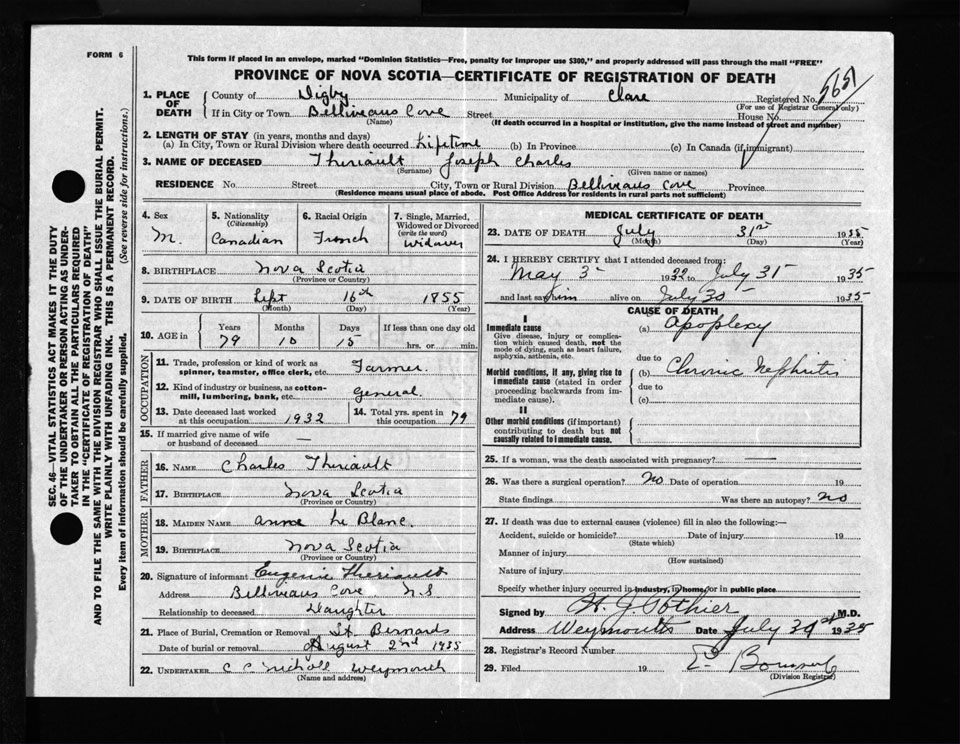 FORM 6
This form if placed in an envelope, marked "Dominion Statistics—Free, penalty for improper use $300," and properly addressed will pass through the mail "FREE"
PROVINCE OF NOVA SCOTIA—CERTIFICATE OF REGISTRATION OF DEATH
1. PLACE OF DEATH
County of Digby Municipality of Clare Registered No.
(For use of Registrar General only)
If in City or Town Belliveaus Cove Street House No.
(Name) (If death occurred in a hospital or institution, give the name instead of street and number)
2. LENGTH OF STAY (in years, months and days)
(a) In City, Town or Rural Division where death occurred Lifetime (b) In Province (c) In Canada (if immigrant)
3. NAME OF DECEASED Theriault Joseph Charles
(Surname) (Given name or names)
RESIDENCE No. Street City, Town or Rural Division Belliveaus Cove Province
(Residence means usual place of abode. Post Office Address for residents in rural parts not sufficient)
4. Sex
M.
5. Nationality
(Citizenship)
Canadian
6. Racial Origin
French
7. Single, Married, Widowed or Divorced
(write the word)
Widower
8. BIRTHPLACE Nova Scotia
(Province or Country)
9. DATE OF BIRTH Sept 16th 1855
(Month) (Day) (Year)
10. AGE in
Years Months Days If less than one day old
79 10 15 hrs. or min.
OCCUPATION
11. Trade, profession or kind of work as spinner, teamster, office clerk, etc. Farmer.
12. Kind of industry or business, as cotton-mill, lumbering, bank, etc. General.
13. Date deceased last worked at this occupation 1932
14. Total yrs. spent in this occupation 79
15. If married give name of wife or husband of deceased —
FATHER
16. NAME Charles Theriault
17. BIRTHPLACE Nova Scotia
(Province or Country)
MOTHER
18. MAIDEN NAME Anne Le Blanc.
19. BIRTHPLACE Nova Scotia
(Province or Country)
20. Signature of informant Eugenie Theriault
Address Belliveaus Cove N.S
Relationship to deceased Daughter
21. Place of Burial, Cremation or Removal St. Bernards
Date of burial or removal August 2nd 1935
22. UNDERTAKER C C Nicholl Weymouth
(Name and address)
MEDICAL CERTIFICATE OF DEATH
23. DATE OF DEATH July 31st 1935
(Month) (Day) (Year)
24. I HEREBY CERTIFY that I attended deceased from:
May 3 1932 to July 31 1935
and last saw him alive on July 30 1935
CAUSE OF DEATH
I
Immediate cause
Give disease, injury or complication which caused death, not the mode of dying, such as heart failure, asphyxia, asthenia, etc.
(a) Apoplexy
due to
Morbid conditions, if any, giving rise to immediate cause (stated in order proceeding backwards from immediate cause).
(b) Chronic Nephritis
due to
(c)
II
Other morbid conditions (if important) contributing to death but not causally related to immediate cause.
25. If a woman, was the death associated with pregnancy? —
26. Was there a surgical operation? No Date of operation 19
State findings Was there an autopsy? No
27. If death was due to external causes (violence) fill in also the following:—
Accident, suicide or homicide? Date of injury 19
(State which)
Manner of injury
(How sustained)
Nature of injury
Specify whether injury occurred in industry, in home, or in public place
Signed by H. J. Pothier M.D.
Address Weymouth Date July 1935
28. Registrar's Record Number
29. Filed 19
(Division Registrar)
SEC. 46—VITAL STATISTICS ACT MAKES IT THE DUTY
OF THE UNDERTAKER OR PERSON ACTING AS UNDER-
TAKER TO OBTAIN ALL THE PARTICULARS REQUIRED
IN THE "CERTIFICATE OF REGISTRATION OF DEATH"
AND TO FILE THE SAME WITH THE DIVISION REGISTRAR WHO SHALL ISSUE THE BURIAL PERMIT.
WRITE PLAINLY WITH UNFADING INK. THIS IS A PERMANENT RECORD.
Every item of information should be carefully supplied. (See reverse side for instructions.)